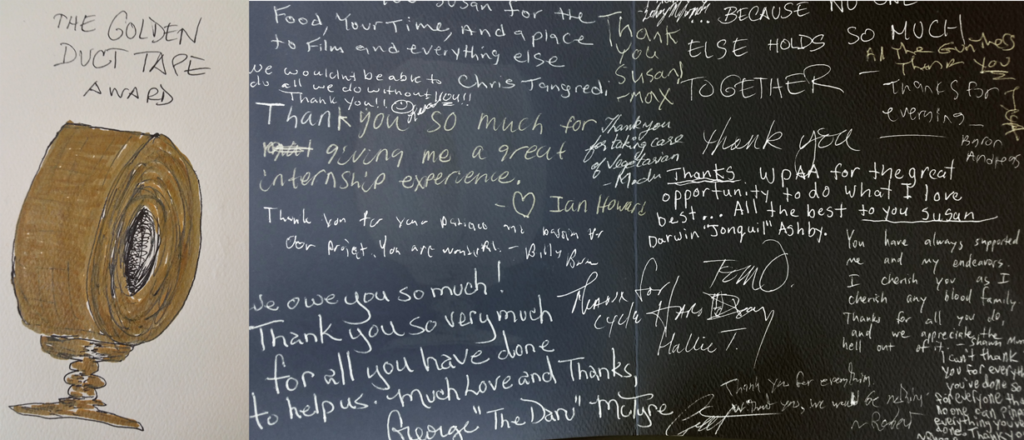 THE GOLDEN
DUCT TAPE
AWARD
Susan for the
Food, Your Time, And a place
to Film and everything else
we wouldn't be able to
do all we do without you!!
Thank you!!
Chris Tangredi
Thank you so much for
giving me a great
internship experience.
- ♡ Ian Howard
Thank you for your patience
Our project. You are wonderful. - Billy
We owe you so much!
Thank you so very much
for all you have done
to help us. Much Love and Thanks,
George "The Danu" McTyre
Thank
you
Susan
-nox
... BECAUSE NO ONE
ELSE HOLDS SO MUCH
TOGETHER
Thank you
for taking care
of Vegetarian
All The
Thank You
Thanks for
everything
Byron
Andrews
thank you
Thanks WPAA for the great
opportunity to do what I love
best... All the best to you Susan
Darwin "Jonquil" Ashby.
Tom O.
Thank for
Hallie T.
You have always supported
me and my endeavors.
I cherish you as I
cherish any blood family
Thanks for all you do,
and we appreciate the
hell out of it
I can't thank
you for everything
you've done
Thank you for everything.
without you, we would be nothing.
~ Robert